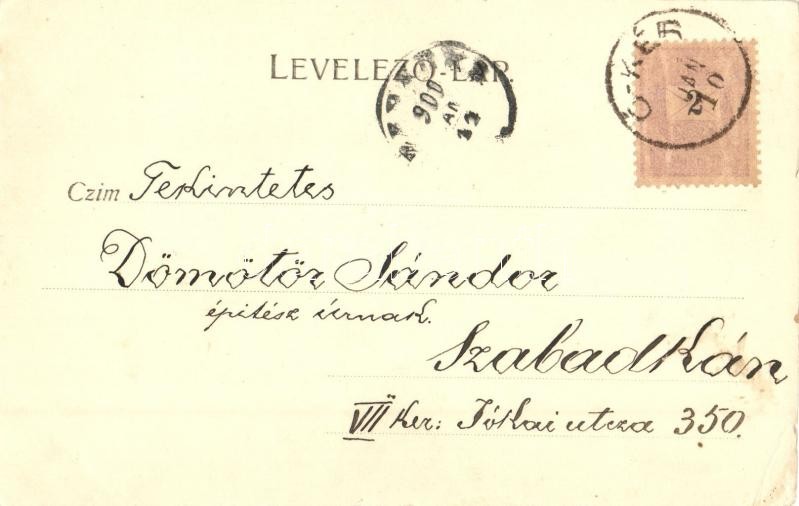 LEVELEZŐ-LAP.
Ó-KÉR
JAN
10
900
12
Czim Tekintetes
Dömötör Sándor
építész úrnak.
Szabadkán
VII Ker: Jókai utcza 350.